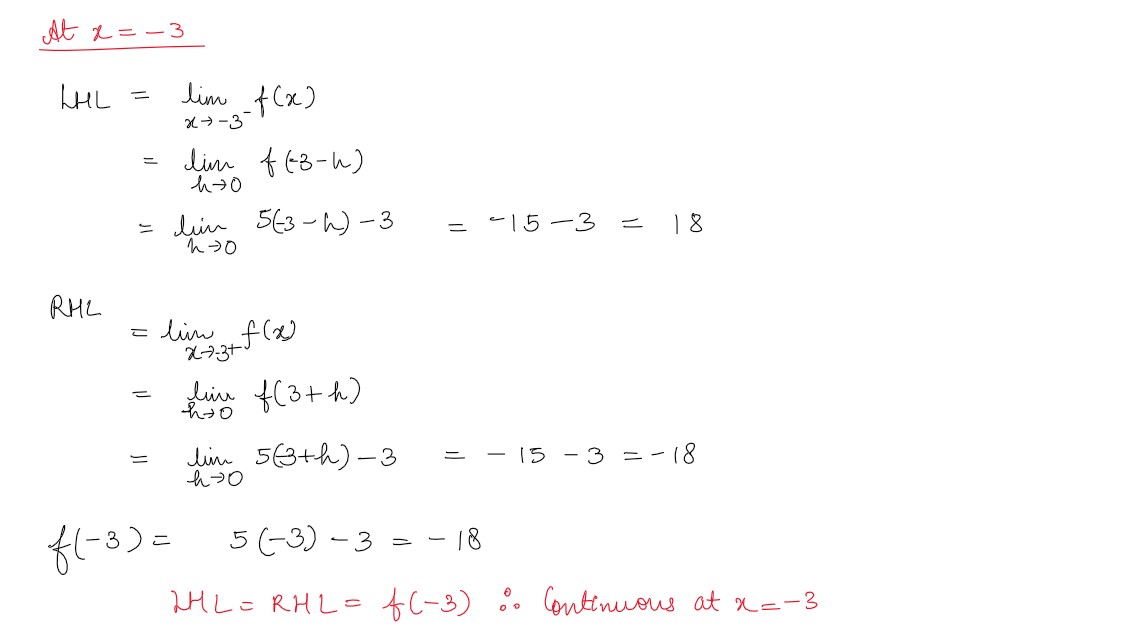 At x = -3
LHL = lim x→-3⁻ f(x)
= lim h→0 f(-3-h)
= lim h→0 5(-3-h)-3 = -15-3 = 18
RHL
= lim x→-3+ f(x)
= lim h→0 f(3+h)
= lim h→0 5(-3+h)-3 = -15-3 = -18
f(-3) = 5(-3)-3 = -18
LHL = RHL = f(-3) ∴ Continuous at x = -3